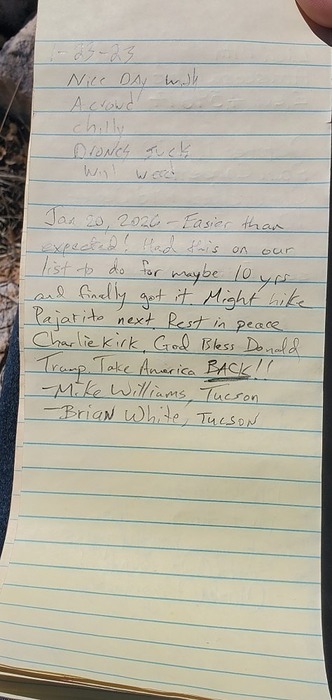 1-23-23
Nice Day with
A crowd
chilly
Drones suck
Jan 20, 2026 - Easier than
expected! Had this on our
list to do for maybe 10 yrs
and finally got it. Might hike
Pajarito next. Rest in peace
Charlie Kirk. God Bless Donald
Trump. Take America BACK!!
-Mike Williams, Tucson
-Brian White, Tucson